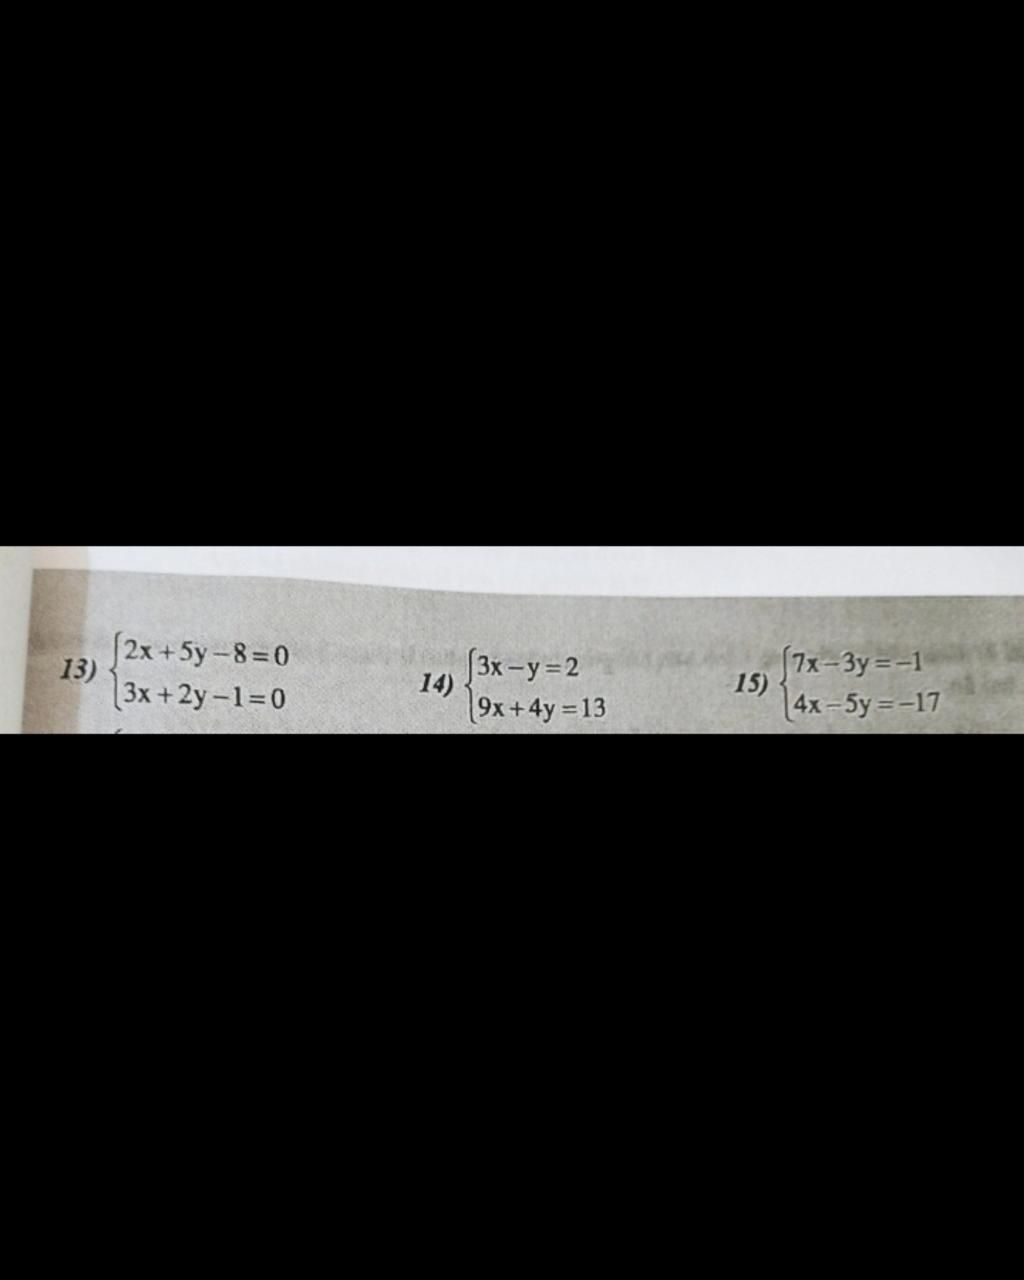 13) 2x+5y-8=0
3x+2y-1=0
14) 3x-y=2
9x+4y=13
15) 7x-3y=-1
4x-5y=-17